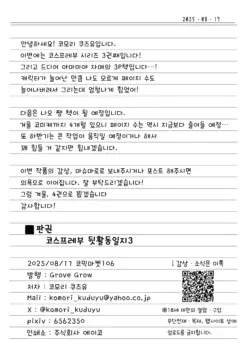 2025 - 08 - 17
안녕하세요! 코모리 쿠즈유입니다.
이번에는 코스프레부 시리즈 3권째입니다!
그리고 드디어 아마미야 자매의 3P책입니다…!
캐릭터가 늘어난 만큼 나도 모르게 페이지 수도
늘어나버려서 그리는데 엄청나게 힘었어!
다음은 나오 짱 책이 될 예정입니다.
겨울 코미케까지 4개월 있으니 페이지 수는 역시 지금보다 줄어들 예정…
또 하반기는 큰 작업이 움직일 예정이거나 해서
꽤 힘들 거 같지만 힘내겠습니다.
이번 작품의 감상, 마슈마로로 보내주시거나 포스트 해주시면
의욕으로 이어집니다. 잘 부탁드리겠습니다!
그럼 겨울, 4권으로 뵙겠습니다
감사합니다!
■ 판권
코스프레부 뒷활동일지3
2025/08/17 코믹마켓106
발행 : Grove Grow
저자 : 코모리 쿠즈유
Mail : komori_kuduyu@yahoo.co.jp
X : @komori_kuduyu
pixiv : 6562350
인쇄소 : 주식회사 에이코
↓감상・소식은 이쪽
※18세 미만의 열람・구입
무단전재・복제, 웹사이트 상에
업로드를 금지합니다.